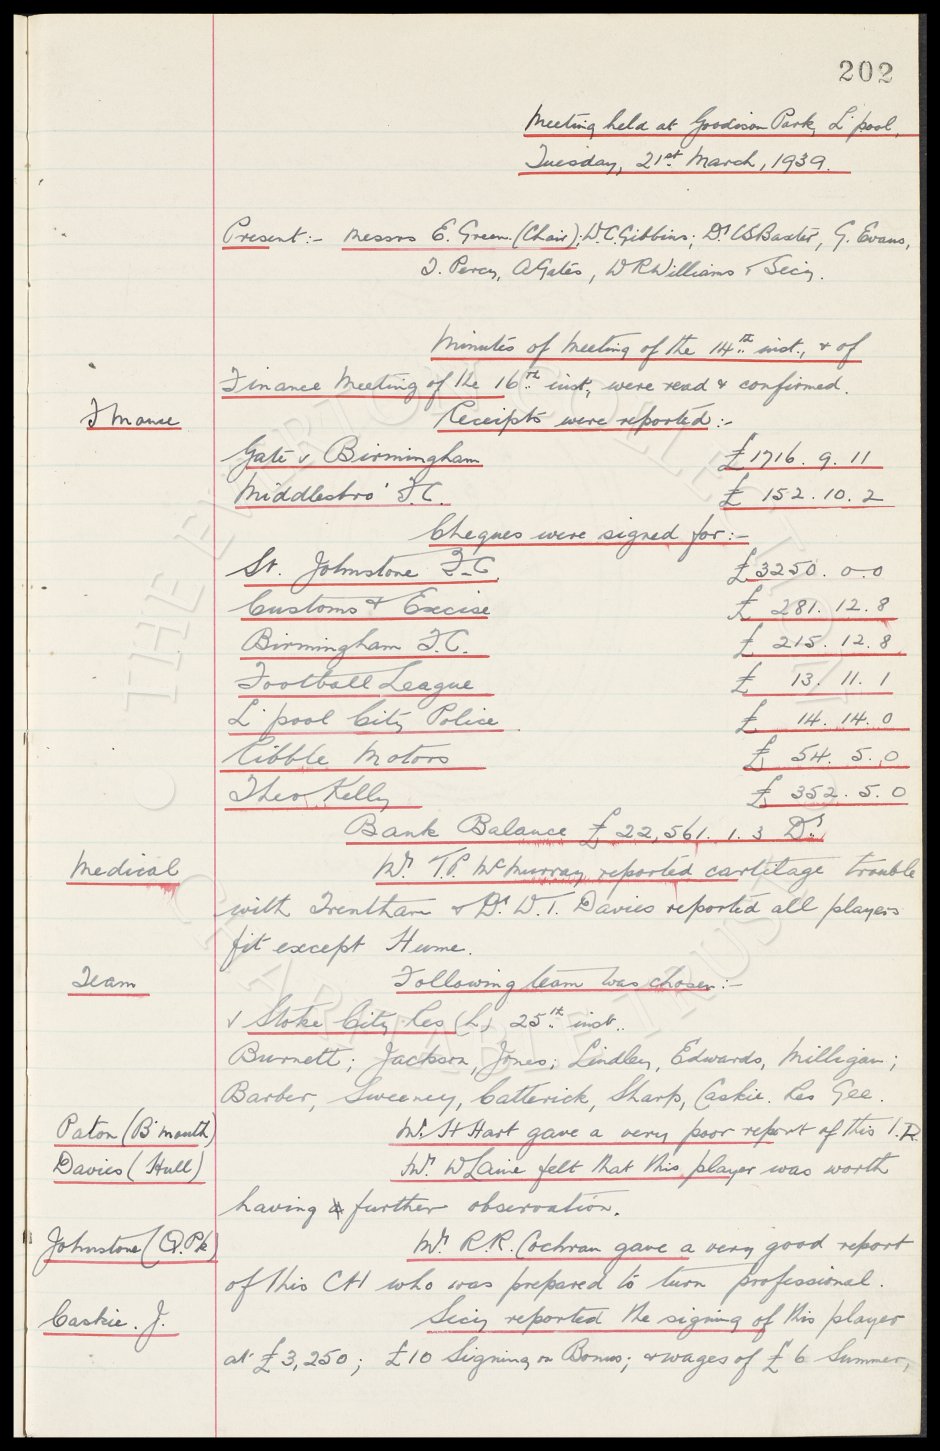 202
Meeting held at Goodison Park, L'pool,
Tuesday, 21st March, 1939.
Present:- Messrs E. Green (Chair); W.C. Gibbins; Dr C.S. Baxter, G. Evans,
J. Percy, A Gates, W R Williams & Secy.
Minutes of Meeting of the 14th inst., & of
Finance Meeting of the 16th inst, were read & confirmed.
Finance Receipts were reported:-
Gate v Birmingham £1716. 9. 11
Middlesbro' F.C. £ 152. 10. 2
Cheques were signed for:-
St. Johnstone F.C. £3250. 0. 0
Customs & Excise £ 281. 12. 8
Birmingham F.C. £ 215. 12. 8
Football League £ 13. 11. 1
L'pool City Police £ 14. 14. 0
Ribble Motors £ 54. 5. 0
Theo Kelly £ 352. 5. 0
Bank Balance £ 22,561. 1. 3 Dr
Medical Mr. T.P. McMurray reported cartilage trouble
with Trentham & Dr. W.T. Davies reported all players
fit except Hume.
Team Following team was chosen:-
v Stoke City Res (h) 25th inst..
Burnett; Jackson, Jones; Lindley, Edwards, Milligan;
Barber, Sweeney, Catterick, Sharp, Caskie. Res Gee.
Paton (B'mouth) Mr. H Hart gave a very poor report of this I.R.
Davies (Hull) Mr. W Laine felt that this player was worth
having further observation.
Johnstone (Q. Pk) Mr. R.R. Cochran gave a very good report
of this CH who was prepared to turn professional.
Caskie. J. Secy reported the signing of this player
at £3,250; £10 Signing on Bonus; & wages of £6 Summer,
THE EVERTON COLLECTION
CHARITABLE TRUST